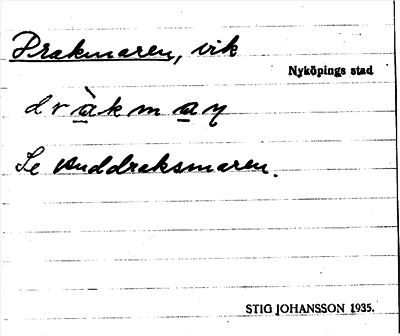 Drakmaren, vik
Nyköpings stad
dràkmaɳ
Se Anddraksmaren.
STIG JOHANSSON 1935.